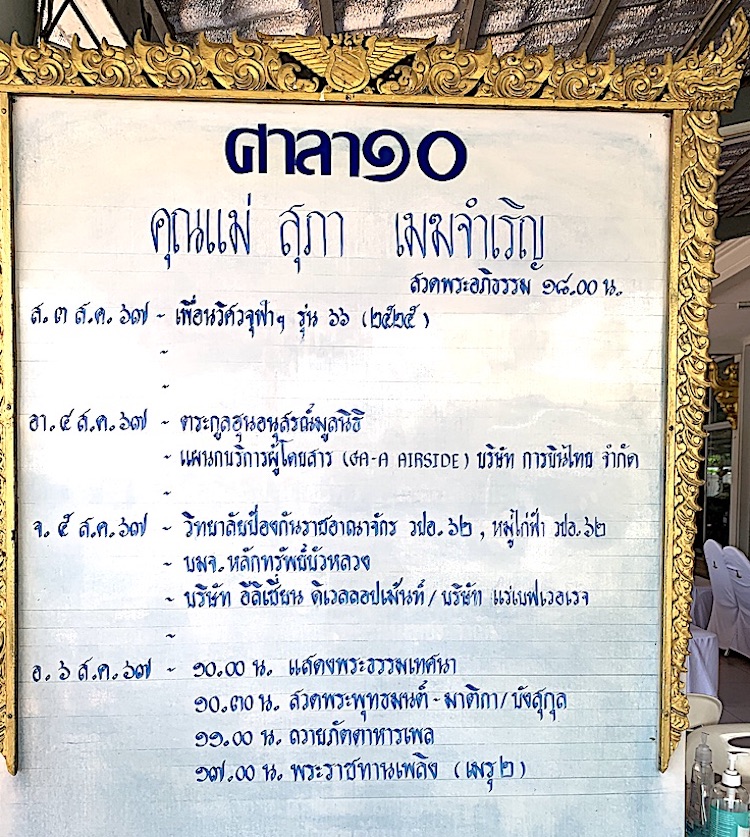 ศาลา๑๐
คุณแม่ สุภา เมฆจำเริญ
สวดพระอภิธรรม ๑๘.๐๐ น.
ส. ๓ ส.ค. ๖๗ - เพื่อนวิศวจุฬาฯ รุ่น ๖๖ (๒๕๒๕)
-
-
อา. ๔ ส.ค. ๖๗ - ตระกูลฮุนอนุสรณ์มูลนิธิ
- แผนกบริการผู้โดยสาร (GA-A AIRSIDE) บริษัท การบินไทย จำกัด
-
จ. ๕ ส.ค. ๖๗ - วิทยาลัยป้องกันราชอาณาจักร วปอ. ๖๒, หมู่ไก่ฟ้า วปอ. ๖๒
- บมจ. หลักทรัพย์บัวหลวง
- บริษัท อีลิเชี่ยน ดิเวลลอปเม้นท์ / บริษัท แร่เบฟเวอเรจ
-
อ. ๖ ส.ค. ๖๗ - ๑๐.๐๐ น. แสดงพระธรรมเทศนา
๑๐.๓๐ น. สวดพระพุทธมนต์ - มาติกา / บังสุกุล
๑๑.๐๐ น. ถวายภัตตาหารเพล
๑๗.๐๐ น. พระราชทานเพลิง (เมรุ ๒)